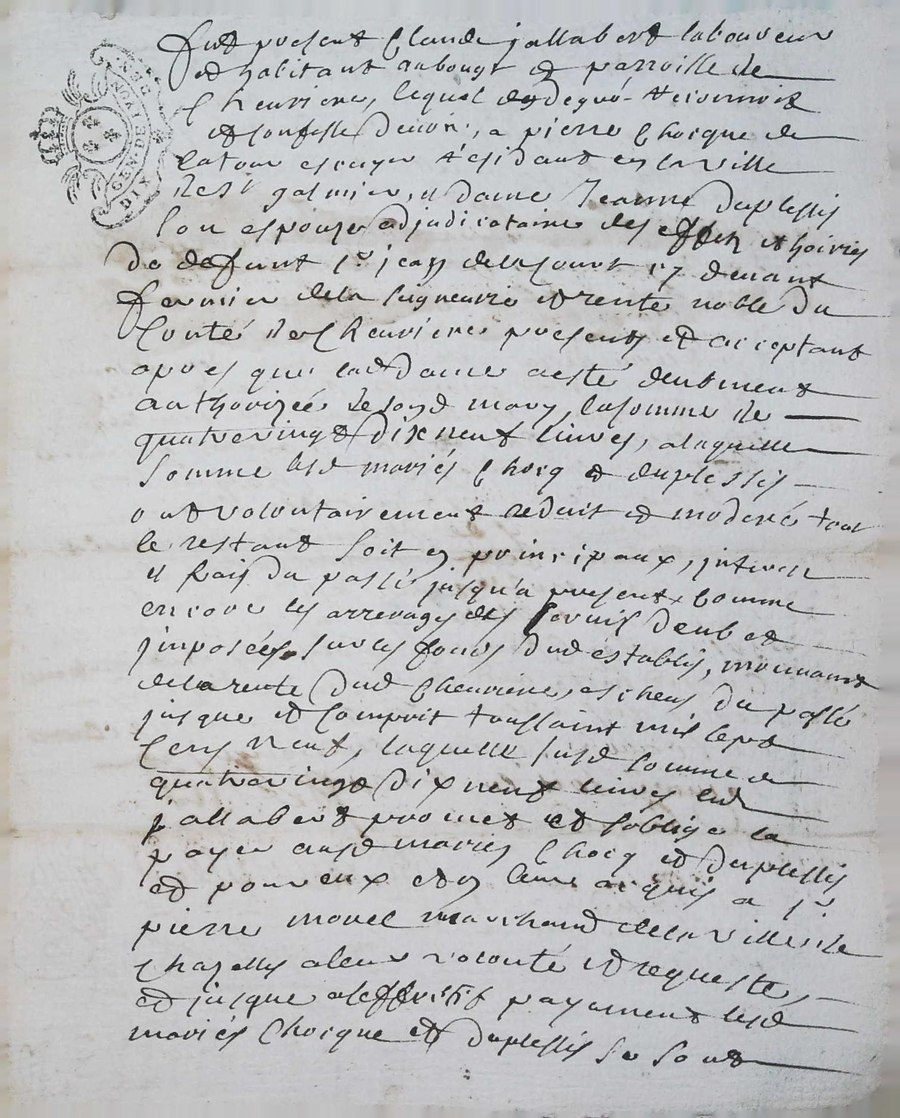 GEN. DE LYON
DIX DEN.
fut present Claude jallabert laboureur
et habitant au bourgt et parroisse de
Chevriere, lequel de gré a reconnut
et confesse devoir, a pierre Chocque de
latour escuyer residant en la ville
de st galmier, et dame Jeanne duplessis
son espouze adjudicataire des effetz et hoiries
de defunt sr jean delacourt devant
fermier de la seigneurie et rente noble du
Conté de Chevriere presents et acceptant
apres que ladt dame a esté deubment
authorizée de sond mary, la somme de
quatrevingt dix neuf livres, a laquelle
somme lesd mariés Chocq et duplessis
ont volontairement reduit et moderé tout
le restant soit en principaux, interetz
et frais du passé jusqu'a present comme
encore les arrerages des servis deub et
imposées sur les fonds dud establis, mouvants
de la rente dud Chevriere, escheus du passé
jusque et comprit toussaint mil sept
cens neuf, laquelle susd somme de
quatrevingt dix neuf livres led
jallabert promet et soblige la
payer ausd mariés Chocq et duplessis
et pour eux et en leur acquis a sr
pierre morel marchand de la ville de
Chazelles a leur volonté et requeste,
et jusque a leffectif payement lesd
mariés Chocque et duplessis se sont